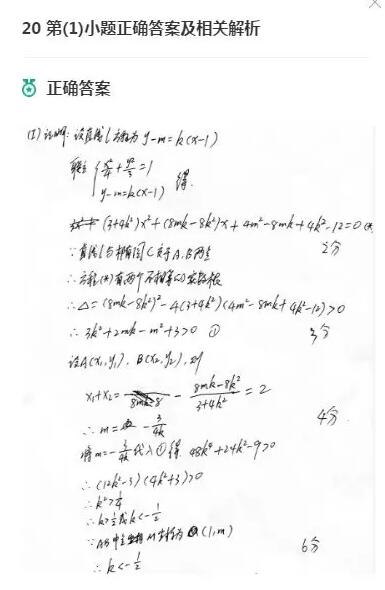 20 第(1)小题正确答案及相关解析
正确答案
(1) 证明: 设直线l方程为 y-m=k(x-1)
联立 { x²/4 + y²/3 = 1
y-m=k(x-1) 得.
(3+4k²)x²+(8mk-8k²)x+4m²-8mk+4k²-12=0 (*)
∵直线l与椭圆C交于A,B两点 2分
∴方程(*)有两个不相等的实数根
∴△=(8mk-8k²)²-4(3+4k²)(4m²-8mk+4k²-12)>0
∴ 3k²+2mk-m²+3>0 ① 3分
设A(x₁,y₁), B(x₂,y₂), 则
x₁+x₂= - (8mk-8k²)/(3+4k²) = 2
∴ m= - 3/4k 4分
将m=- 3/4k 代入①得. 48k⁴+24k²-9>0
∴ (12k²-3)(4k²+3)>0
∴ k²>1/4
∴ k>1/2或k<-1/2
∵ AB中点 M坐标为 (1,m)
∴ k<-1/2 6分